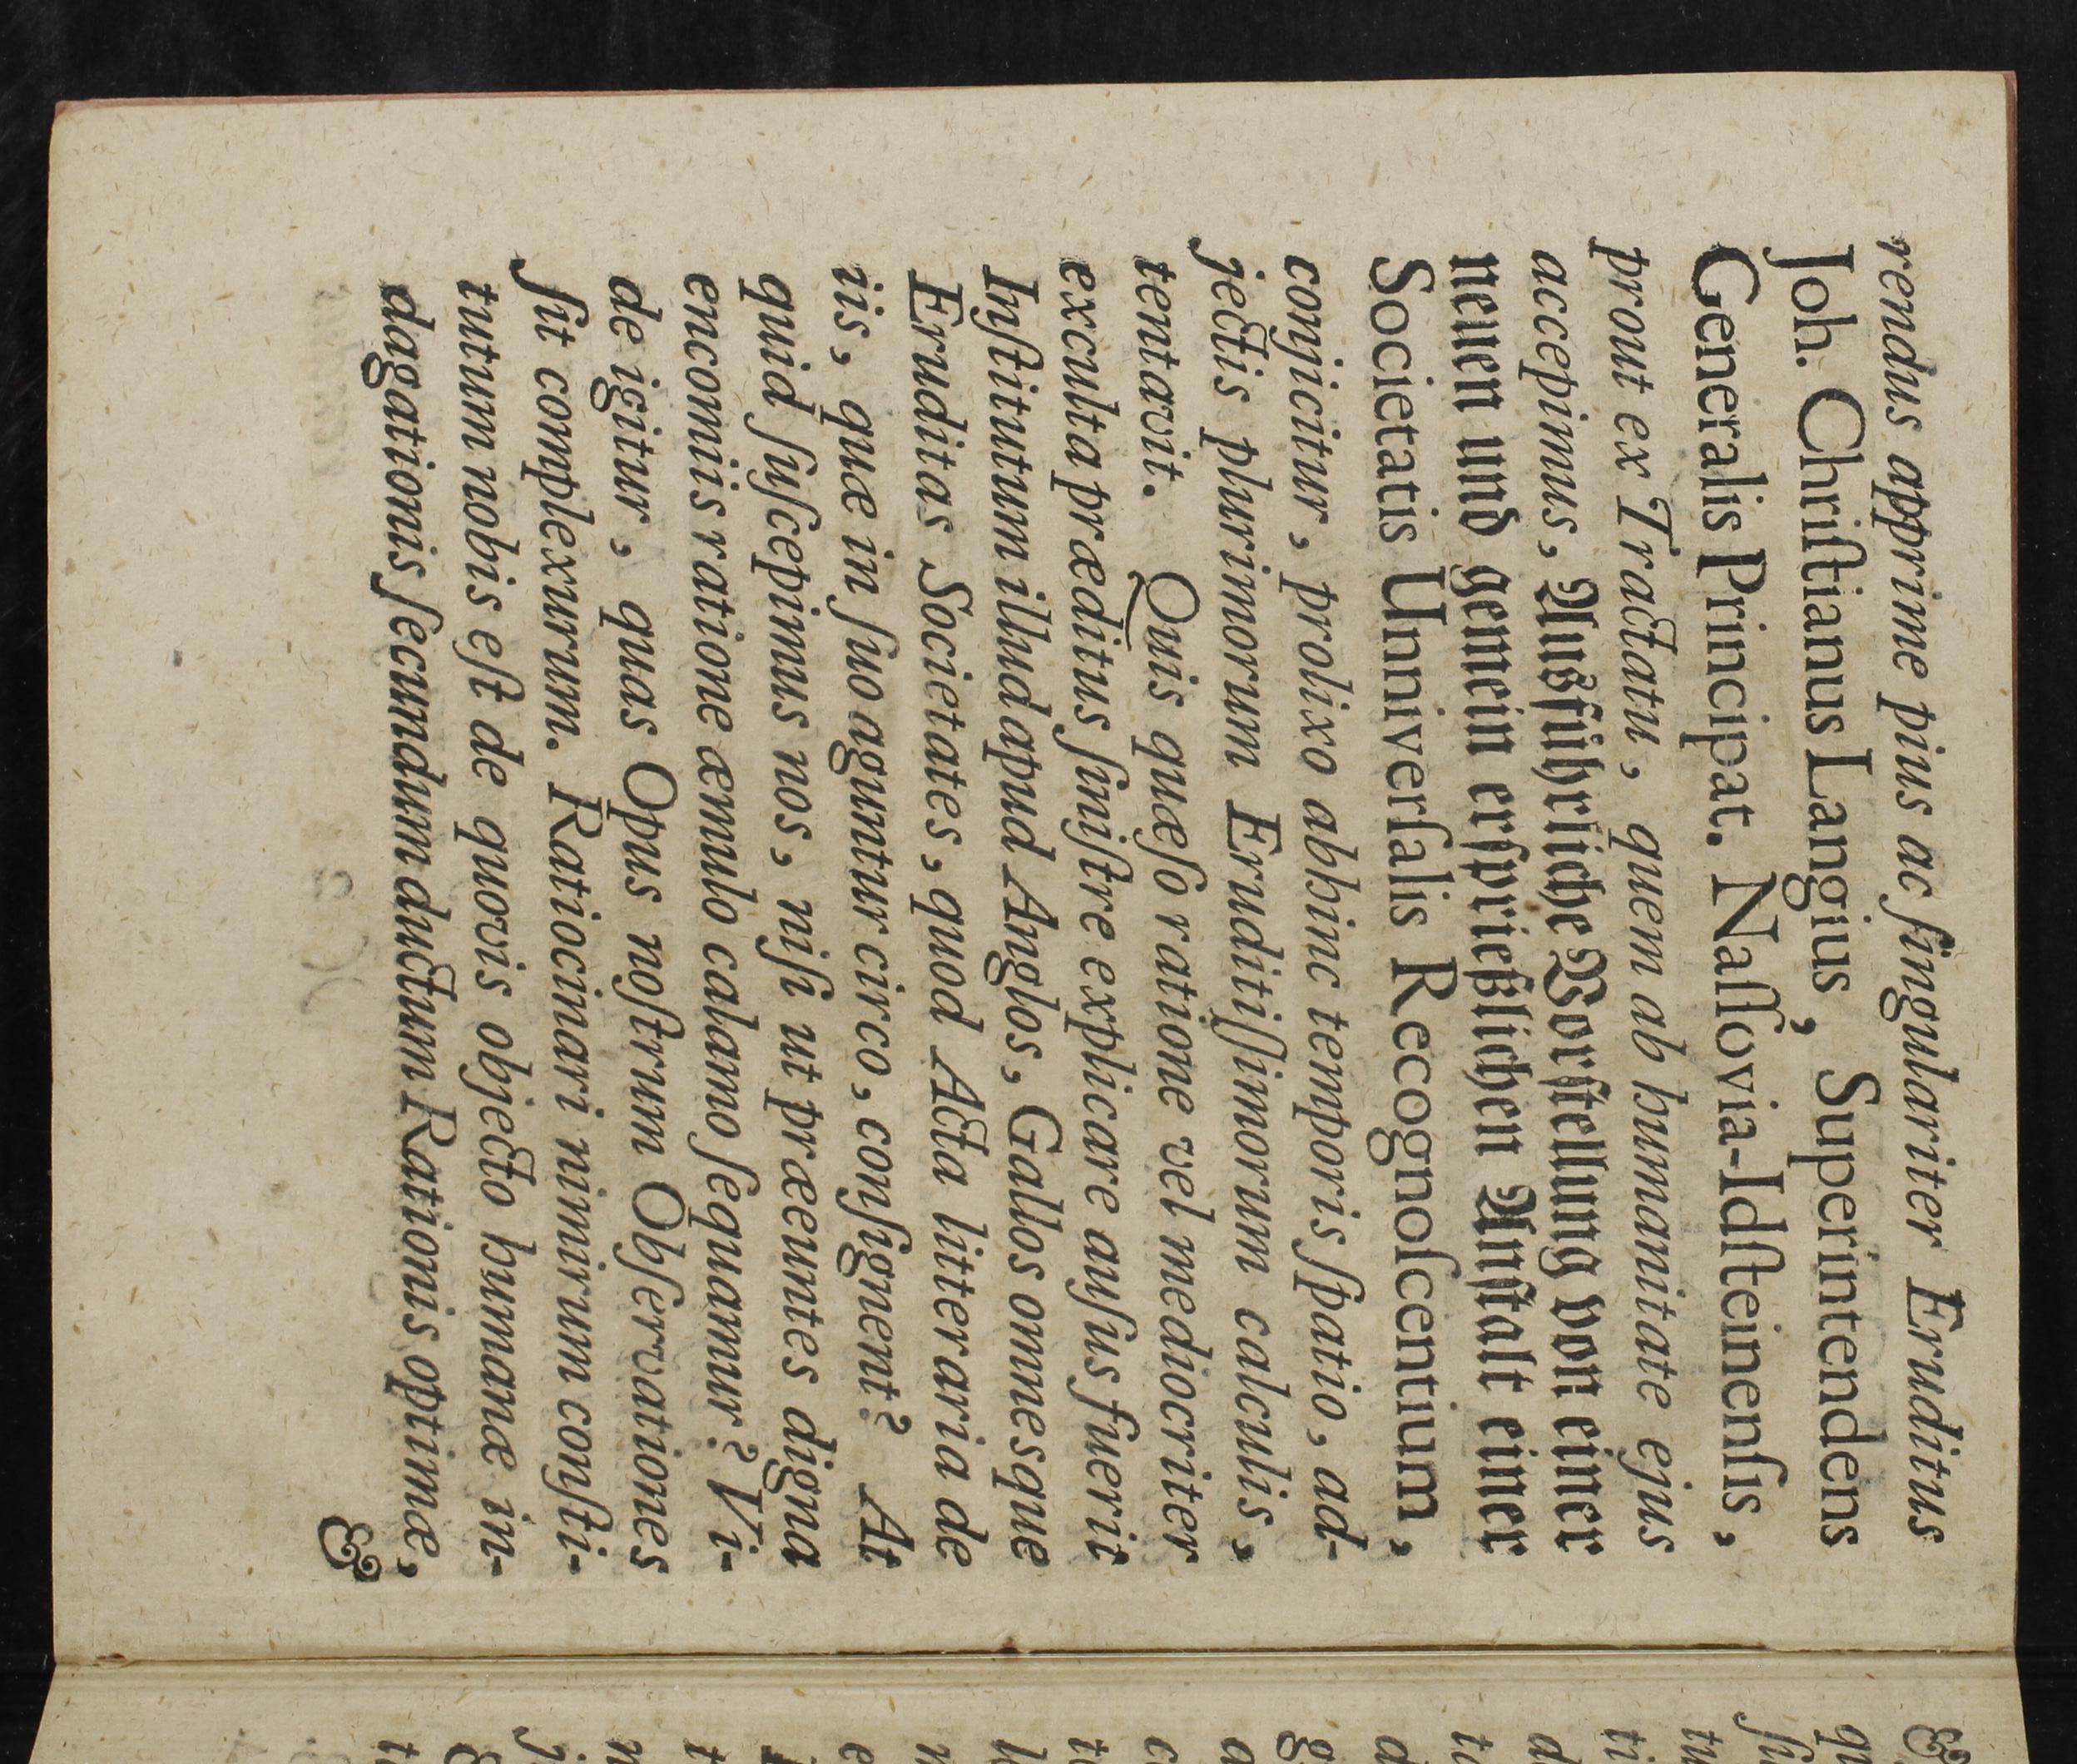 rendus apprime pius ac ſingulariter Eruditus
Joh. Chriſtianus Langius, Superintendens
Generalis Principat. Naſſovia-Idſteinenſis,
prout ex Tractatu, quem ab humanitate ejus
accepimus, Ausführliche Vorſtellung von einer
neuen und gemein erſprießlichen Anſtalt einer
Societatis Univerſalis Recognoſcentium,
conjicitur, prolixo abhinc temporis ſpatio, ad-
jectis plurimorum Eruditiſſimorum calculis,
tentavit. Quis quæſo ratione vel mediocriter
exculta præditus ſiniſtre explicare auſus fuerit
Inſtitutum illud apud Anglos, Gallos omnesque
Eruditas Societates, quod Acta litteraria de
iis, quæ in ſuo aguntur circo, conſignent? At
quid ſuſcepimus nos, niſi ut præeuntes digna
encomiis ratione æmulo calamo ſequamur? Vi-
de igitur, quas Opus noſtrum Obſervationes
ſit complexurum. Ratiocinari nimirum conſti-
tutum nobis eſt de quovis objecto humanæ in-
dagationis ſecundum ductum Rationis optimæ,
&